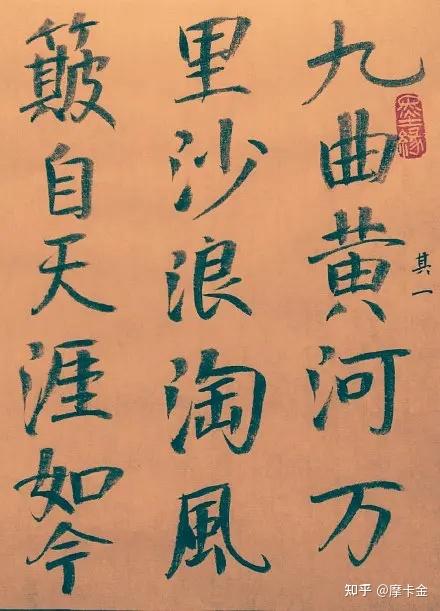 九曲黄河万
里沙浪淘風
簸自天涯如今
其一
墨緣
知乎 @摩卡金